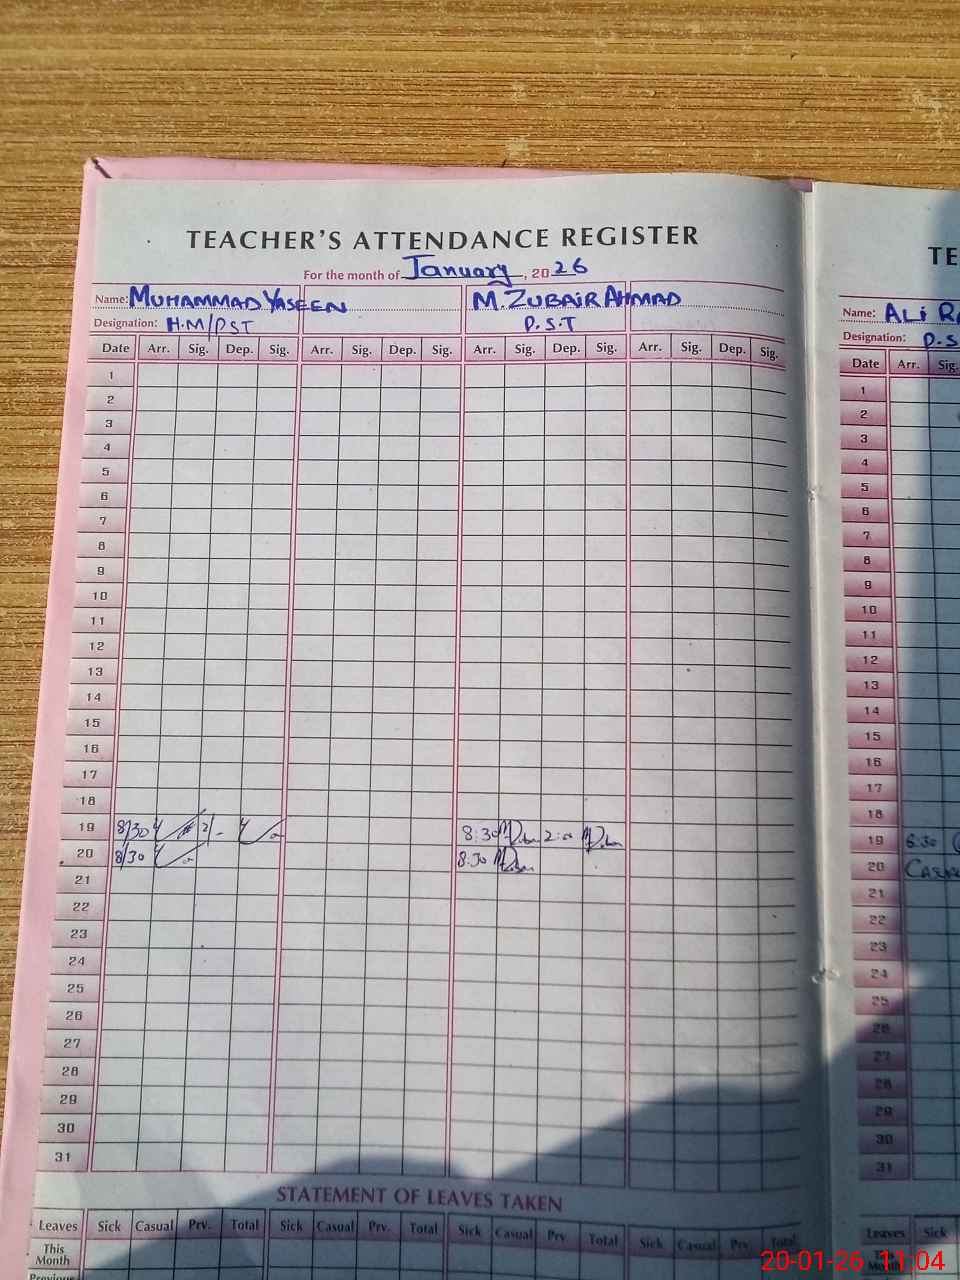 TEACHER'S ATTENDANCE REGISTER
For the month of January, 2026
Name: MUHAMMAD YASEEN M. ZUBAIR AHMAD
Designation: H.M/PST P.S.T
Date Arr. Sig. Dep. Sig. Arr. Sig. Dep. Sig. Arr. Sig. Dep. Sig. Arr. Sig. Dep. Sig.
1
2
3
4
5
6
7
8
9
10
11
12
13
14
15
16
17
18
19 8/30 2/- 8:30 2:00
20 8/30 8:30
21
22
23
24
25
26
27
28
29
30
31
STATEMENT OF LEAVES TAKEN
Leaves Sick Casual Prv. Total Sick Casual Prv. Total Sick Casual Prv Total Sick Casual Prv Total
This
Month
Previous
TE
Name: ALI
Designation: P.S
Date Arr. Sig.
1
2
3
4
5
6
7
8
9
10
11
12
13
14
15
16
17
18
19 8:30
20
21
22
23
24
25
26
27
28
29
30
31
Leaves Sick
Month
20-01-26 11:04